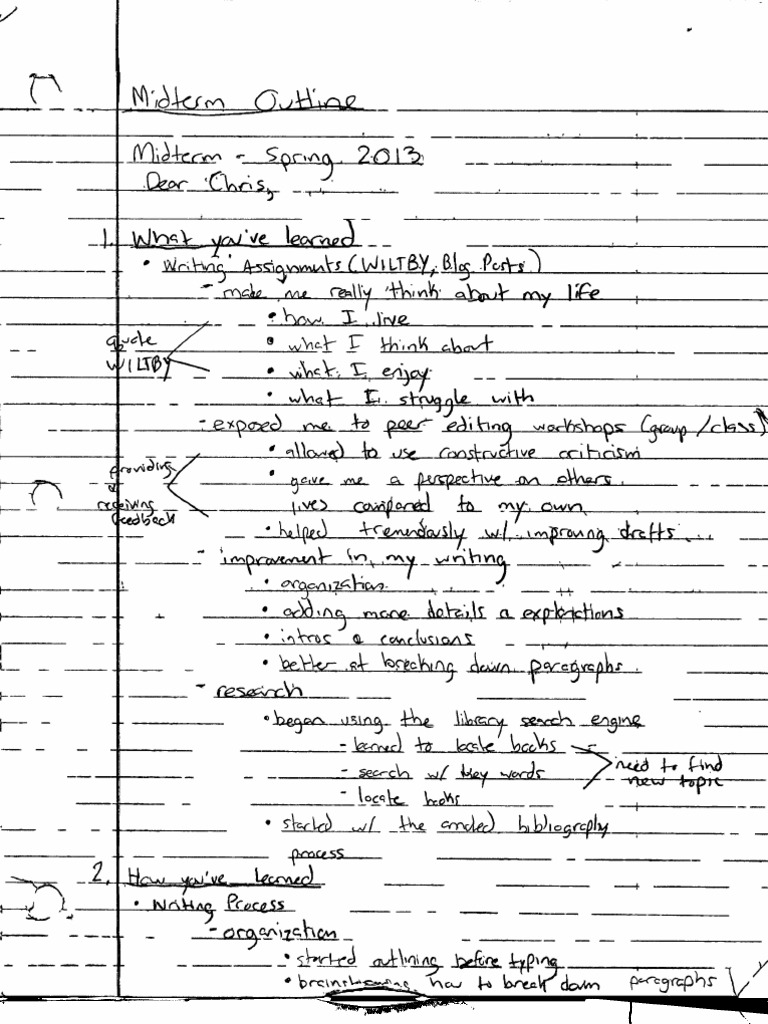 Midterm Outline
Midterm - Spring 2013
Dear Chris,
1. What you've learned
• Writing Assignments (WILTBY, Blog Posts)
- make me really think about my life
• how I live
quote
• what I think about
WILTBY
• what I enjoy
• what I struggle with
- exposed me to peer editing workshops (group/class)
• allowed to use constructive criticism
providing
&
receiving
feedback
• gave me a perspective on others
lives compared to my own
• helped tremendously w/ improving drafts...
- improvement in my writing
• organization
• adding more details &
• intros & conclusions
• better at breaking down paragraphs.
- research
• began using the library search engine
- learned to locate books
- search w/ key words
- locate books
need to find
new topic
• started w/ the bibliography
process
2. How you've learned
• Writing Process
- organization
• started outlining before typing
• brainstorming how to break down paragraphs